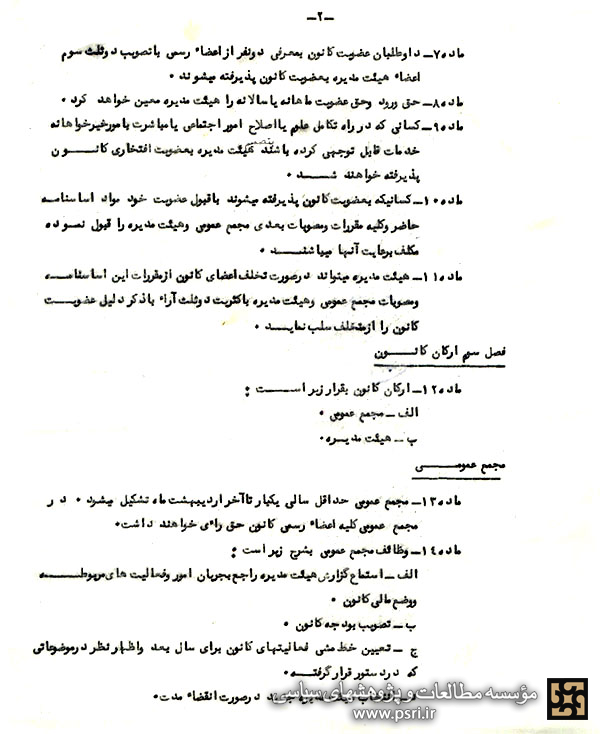 -۲-
ماده ۷- داوطلبان عضویت کانون بمعرفی دو نفر از اعضاء رسمی با تصویب دو ثلث سوم
اعضاء هیئت مدیره بعضویت کانون پذیرفته میشوند .
ماده ۸- حق ورود وحق عضویت ماهانه یا سالانه را هیئت مدیره معین خواهد کرد .
ماده ۹- کسانی که در راه تکامل علوم یا اصلاح امور اجتماعی یا مباشرت بامور خیرخواهانه
خدمات قابل توجهی کرده باشند بتصمیم هیئت مدیره بعضویت افتخاری کانون
پذیرفته خواهند شد .
ماده ۱۰- کسانیکه بعضویت کانون پذیرفته میشوند با قبول عضویت خود مواد اساسنامه
حاضر وکلیه مقررات ومصوبات بعدی مجمع عمومی وهیئت مدیره را قبول نموده
مکلف برعایت آنها میباشند .
ماده ۱۱- هیئت مدیره میتواند درصورت تخلف اعضای کانون از مقررات این اساسنامه
ومصوبات مجمع عمومی وهیئت مدیره باکثریت دوثلث آراء باذکر دلیل عضویت
کانون را از متخلف سلب نماید .
فصل سوم ارکان کانون
ماده ۱۲- ارکان کانون بقرار زیر است :
الف - مجمع عمومی .
ب - هیئت مدیره .
مجمع عمومی
ماده ۱۳- مجمع عمومی حداقل سالی یکبار تا آخر اردیبهشت ماه تشکیل میشود . در
مجمع عمومی کلیه اعضاء رسمی کانون حق رای خواهند داشت .
ماده ۱۴- وظائف مجمع عمومی بشرح زیر است :
الف - استماع گزارش هیئت مدیره راجع بجریان امور وفعالیت های مربوطه
ووضع مالی کانون .
ب - تصویب بودجه کانون .
ج - تعیین خط مشی فعالیتهای کانون برای سال بعد واظهار نظر درموضوعاتی
که در دستور قرار گرفته .
د - انتخاب هیئت مدیره جدید درصورت انقضاء مدت .
مؤسسه مطالعات و پژوهشهای سیاسی
www.psri.ir